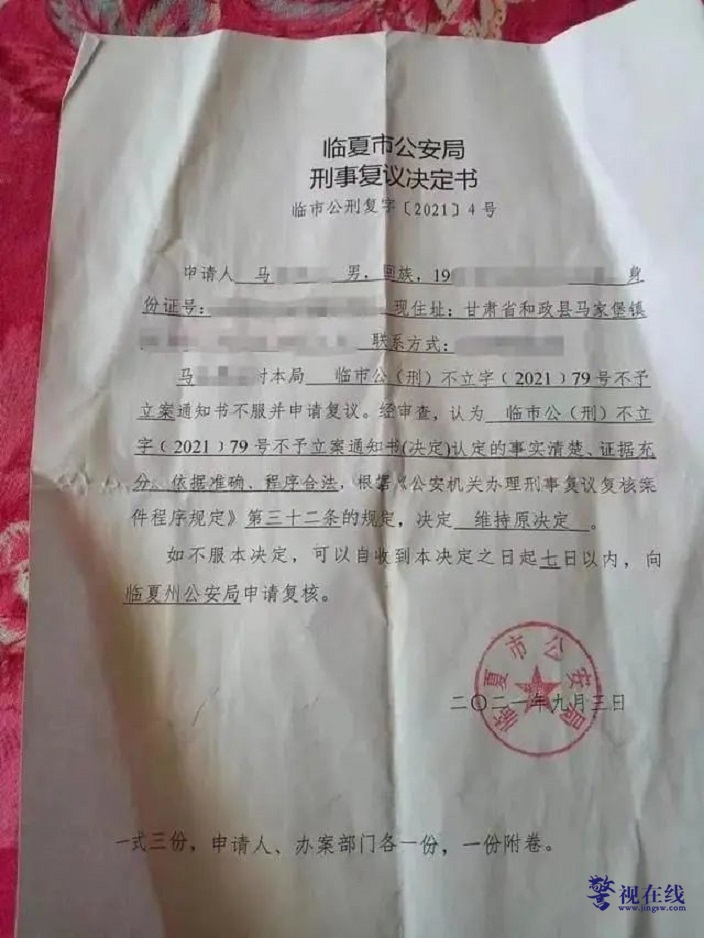 临夏市公安局
刑事复议决定书
临市公刑复字〔2021〕4号
申请人 马 男，回族，19 身
份证号： 现住址：甘肃省和政县马家堡镇
联系方式：
马 对本局 临市公（刑）不立字（2021）79号不予
立案通知书不服并申请复议。经审查，认为 临市公（刑）不立
字（2021）79号不予立案通知书(决定)认定的事实清楚、证据充
分、依据准确、程序合法，根据《公安机关办理刑事复议复核案
件程序规定》第三十二条的规定，决定 维持原决定 。
如不服本决定，可以自收到本决定之日起七日以内，向
临夏州公安局申请复核。
临夏市公安局
二〇二一年九月三日
一式三份，申请人、办案部门各一份，一份附卷。
警视在线
www.jingsw.com